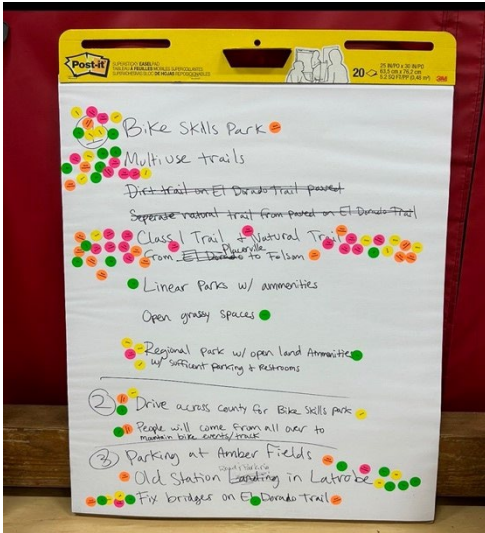 Post-it
SUPERSTICKY EASEL PAD
20
25 IN/PO x 30 IN/PO
63,5 cm x 76,2 cm
3M
Bike Skills Park
Multiuse trails
Dirt trail on El Dorado Trail paved
Seperate natural trail from paved on El Dorado Trail
Class 1 Trail + Natural Trail
Placerville
from El Dorado to Folsom
Linear Parks w/ ammenities
Open grassy spaces
Regional Park w/ open land Ammenities
w/ sufficent parking + Restrooms
2 Drive across county for Bike Skills park
People will come from all over to
maintain bike events/track
3 Parking at Amber Fields
Old Station Landing in Latrobe
Fix bridges on El Dorado Trail